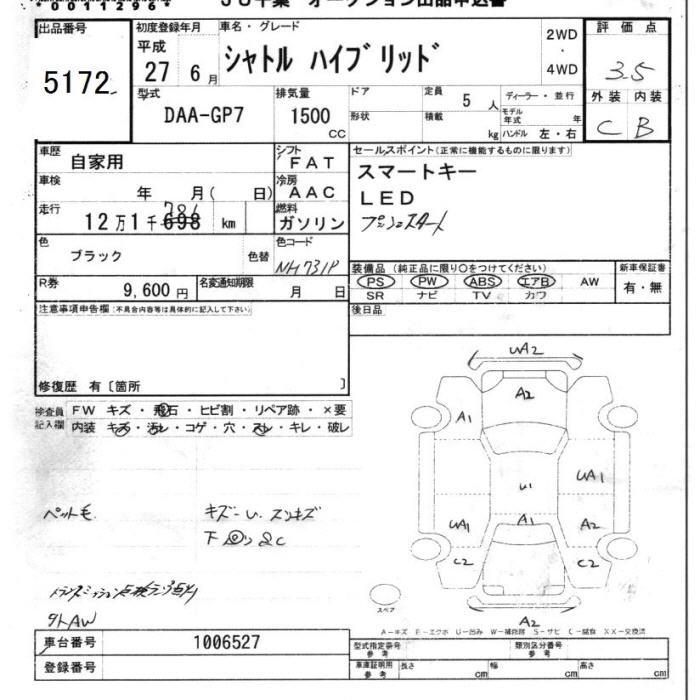 00112964
JU千葉 オークション出品申込書
出品番号
5172
初度登録年月
平成
27 6月
車名・グレード
シャトル ハイブリッド
2WD
・
4WD
評価点
3.5
外装 内装
C B
型式
DAA-GP7
排気量
1500
CC
ドア
形状
定員 5 人
積載 kg
ディーラー・並行
モデル年式 年
ハンドル 左・右
車歴
自家用
シフト
FAT
車検
年 月( 日)
冷房
AAC
走行
781
12万1千698 km
燃料
ガソリン
色
ブラック
色替
色コード
NH731P
セールスポイント(正常に機能するものに限ります)
スマートキー
LED
プッシュスタート
R券
9,600円
名変通知期限
月 日
装備品(純正品に限り○をつけてください)
PS PW ABS エアB AW
SR ナビ TV カワ
新車保証書
有・無
注意事項申告欄(不具合内容等は具体的に記入して下さい)
後日品
修復歴 有〔箇所 〕
検査員
記入欄
FW キズ・飛石・ヒビ割・リペア跡・×要
内装 キズ・汚レ・コゲ・穴・スレ・キレ・破レ
ペット毛
キズ-U. スリキズ
下回り 2C
トランスミッション点検ランプ点灯
外AW
UA2
A2
A1
U1
UA1
UA1
A1
A2
C2
C2
A2
スペア
A-キズ E-エクボ U-凹み W-補修跡 S-サビ C-腐食 XX-交換済
車台番号
1006527
登録番号
型式指定番号
参考
類別区分番号
参考
車庫証明用
参考
長さ cm
幅 cm
高さ cm